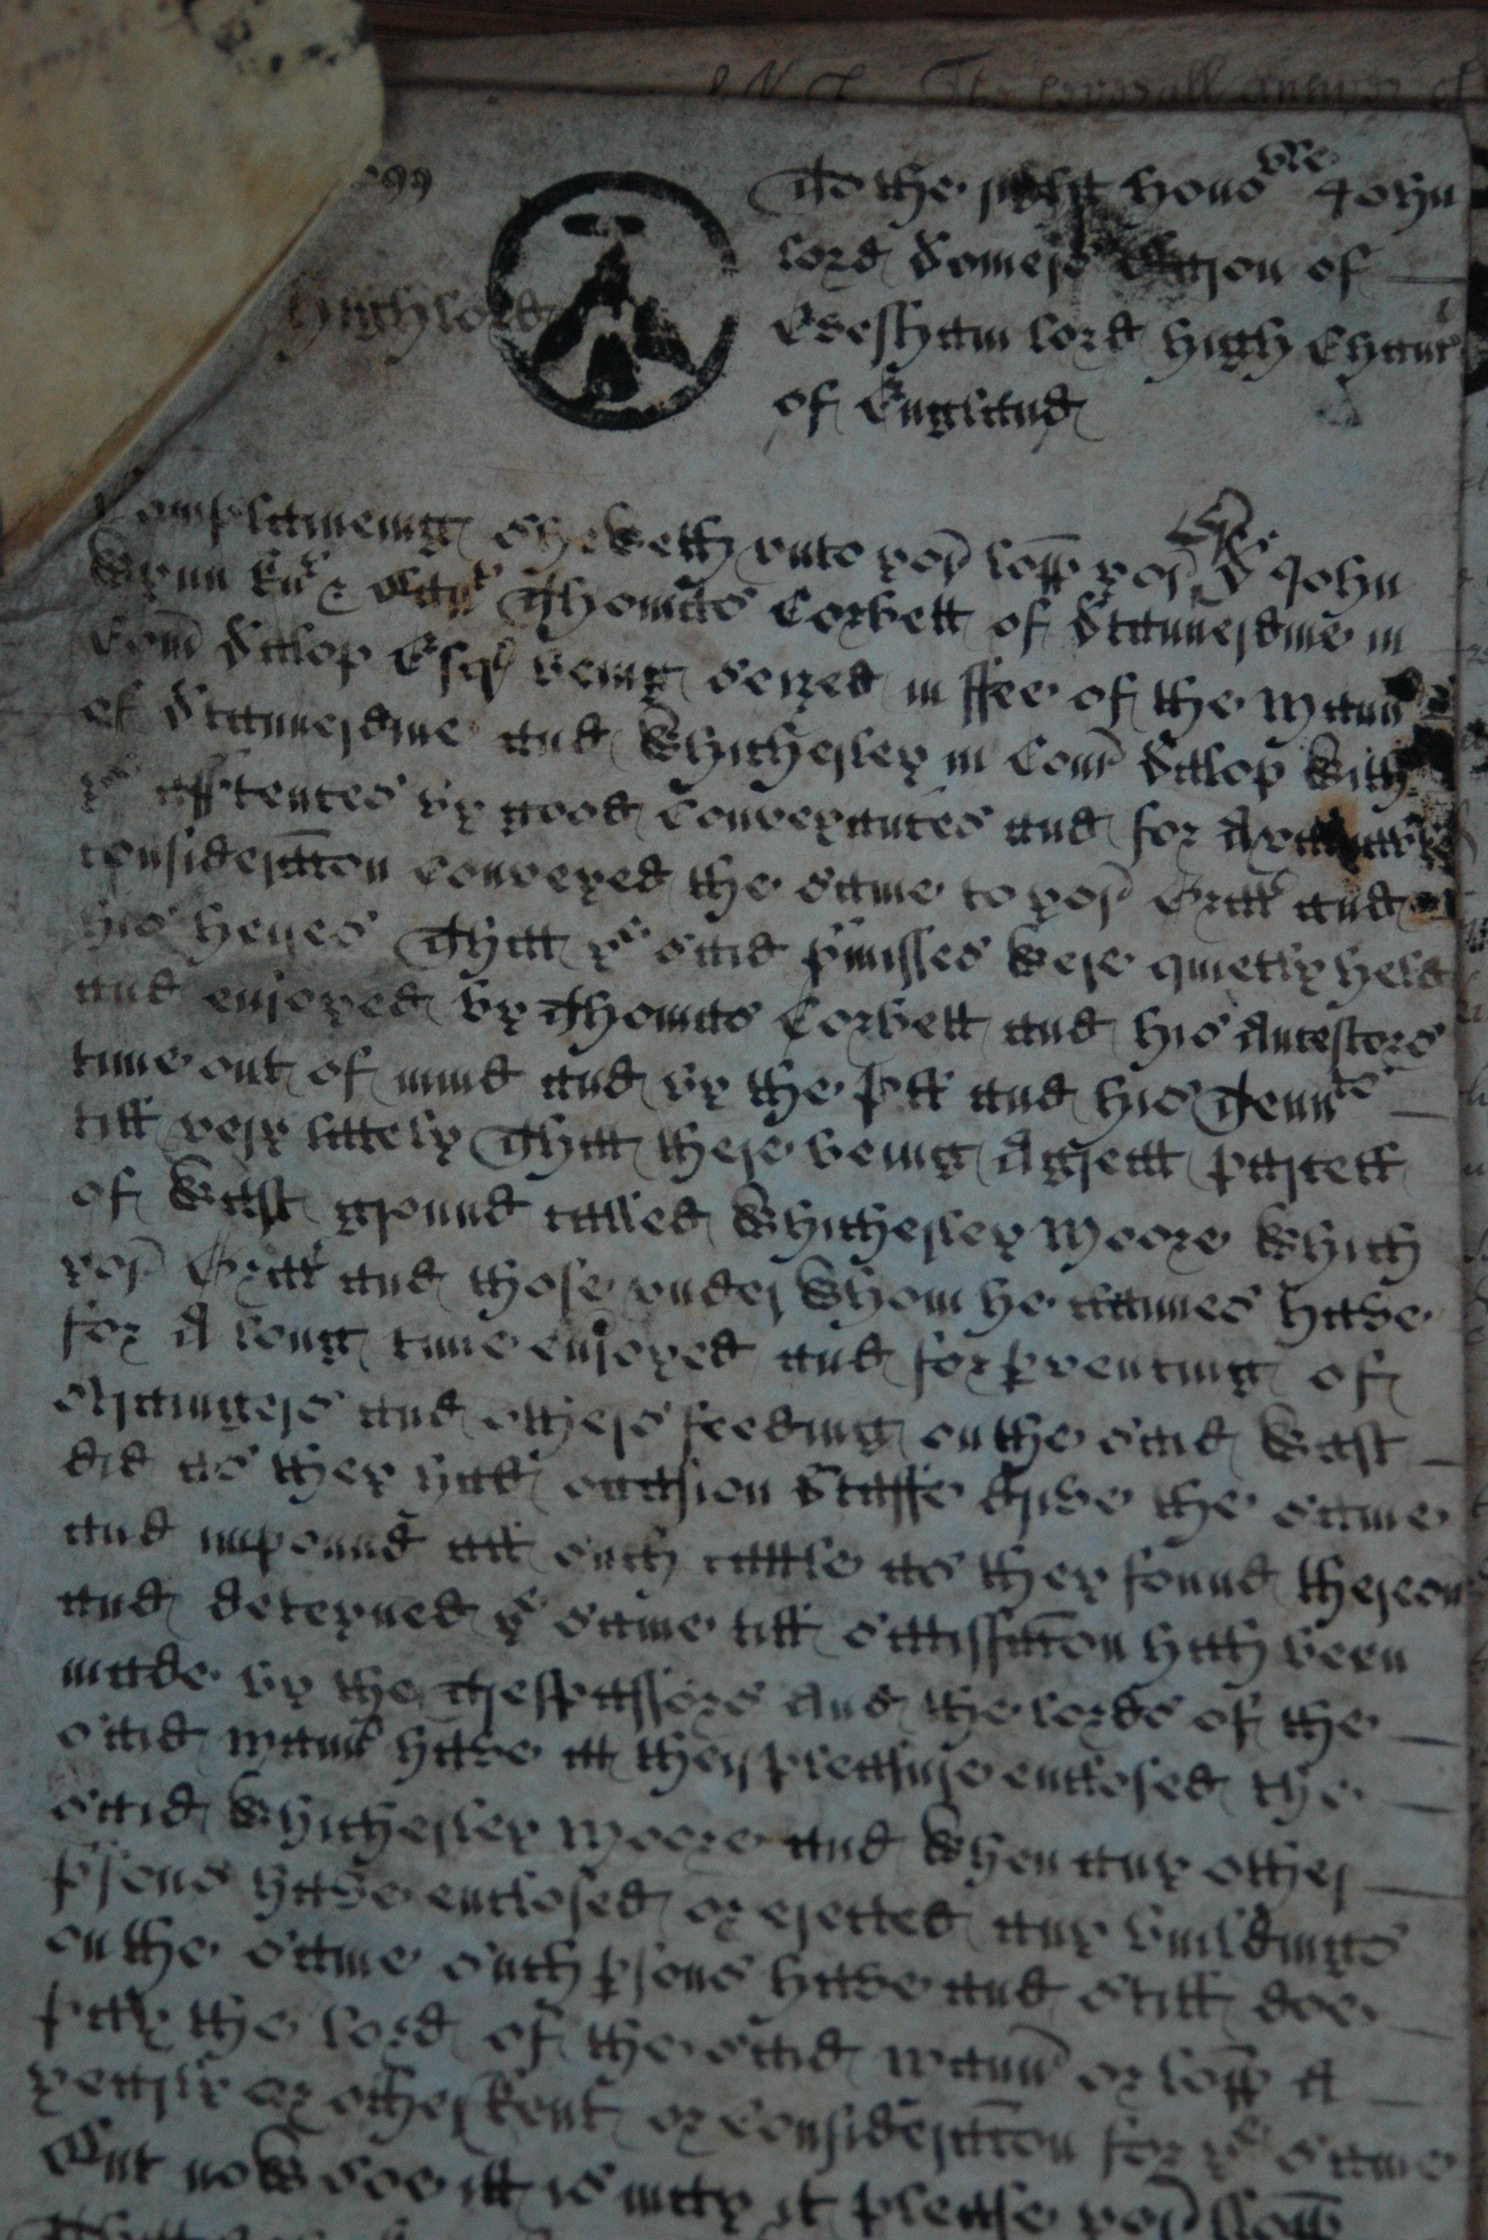 The severall answer of
To the right hono^ble John
lord Somers Baron of
Evesham lord high Chanr
of England
Complaineing Sheweth unto yor lopp yor Orr Sr John
Wynn Knt & Barrt Thomas Corbett of Stannerdine in
Com Salop Esqr being seized in ffee of the Mannr
of Stannerdine and Whicherley in Com Salop with
ye appurtences by good Conveyances and for A
consideracon conveyed the same to yor Oratr and
his heires That ye said pmisses were quietly held
and enjoyed by Thomas Corbett and his Ancestors
time out of mind and by the Plt and his Tennts
till very lately That there being A great parcell
of Wast ground called Whicherley Moore which
yor Oratr and those under whom he claimes have
for A long time enjoyed and for preventing of
strangers and others feeding on the said Wast
did as they had occasion Staffe drive the same
and impound all such cattle as they found thereon
and deteyned ye same till sattisfaccon hath been
made by the Trespassors And the lords of the
said Mannr have at their pleasure enclosed the
said Whicherley Moore and when any other
psons have enclosed or erected any buildings
on the same such psons have and still doe
pay the lord of the said Mannr or lopp a
yearly or other Rent or consideracon for ye same
But now soe itt is may it please yor lopp